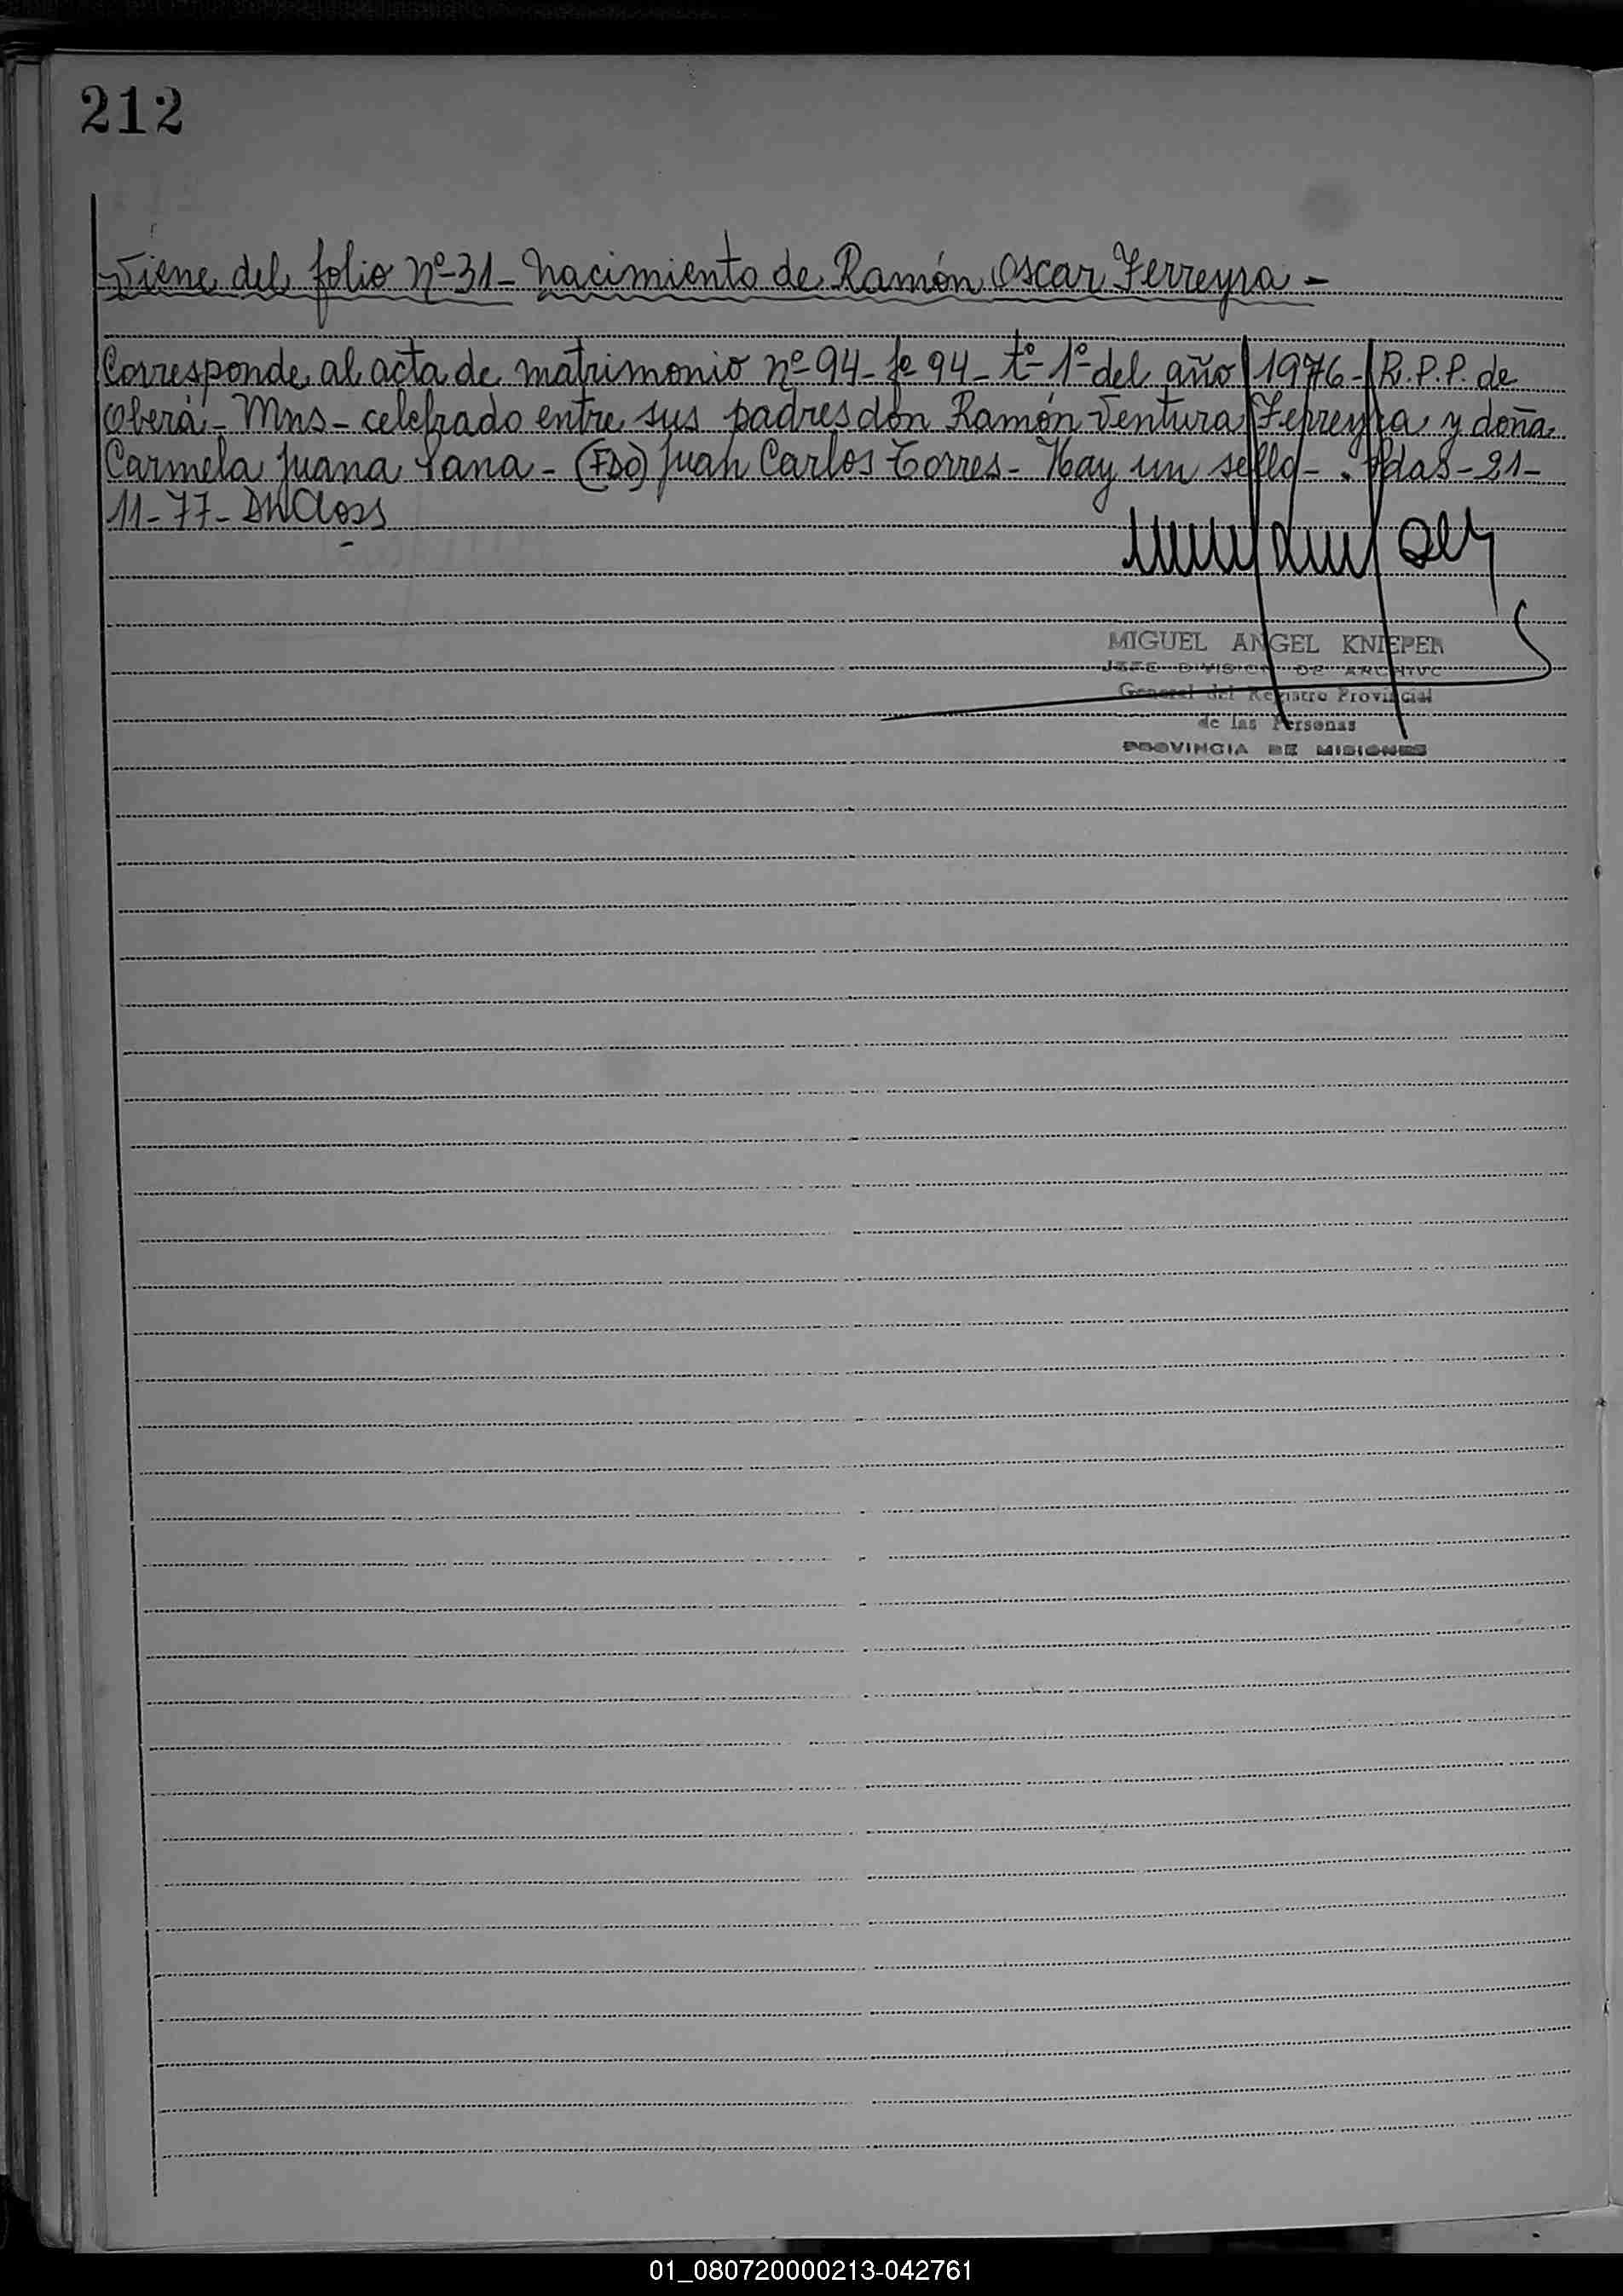 212
Viene del folio nº 31 - Nacimiento de Ramón Oscar Ferreyra -
Corresponde al acta de matrimonio nº 94 - fº 94 - tº 1º del año 1976 - R.P.P. de
Oberá - Mns - celebrado entre sus padres don Ramón Ventura Ferreyra y doña
Carmela Juana - (FDO) Juan Carlos Torres - Hay un sello - Pdas - 21-
11-77-
MIGUEL ANGEL KNIEPER
JEFE DIVISION DE ARCHIVO
General del Registro Provincial
de las Personas
PROVINCIA DE MISIONES
01_080720000213-042761